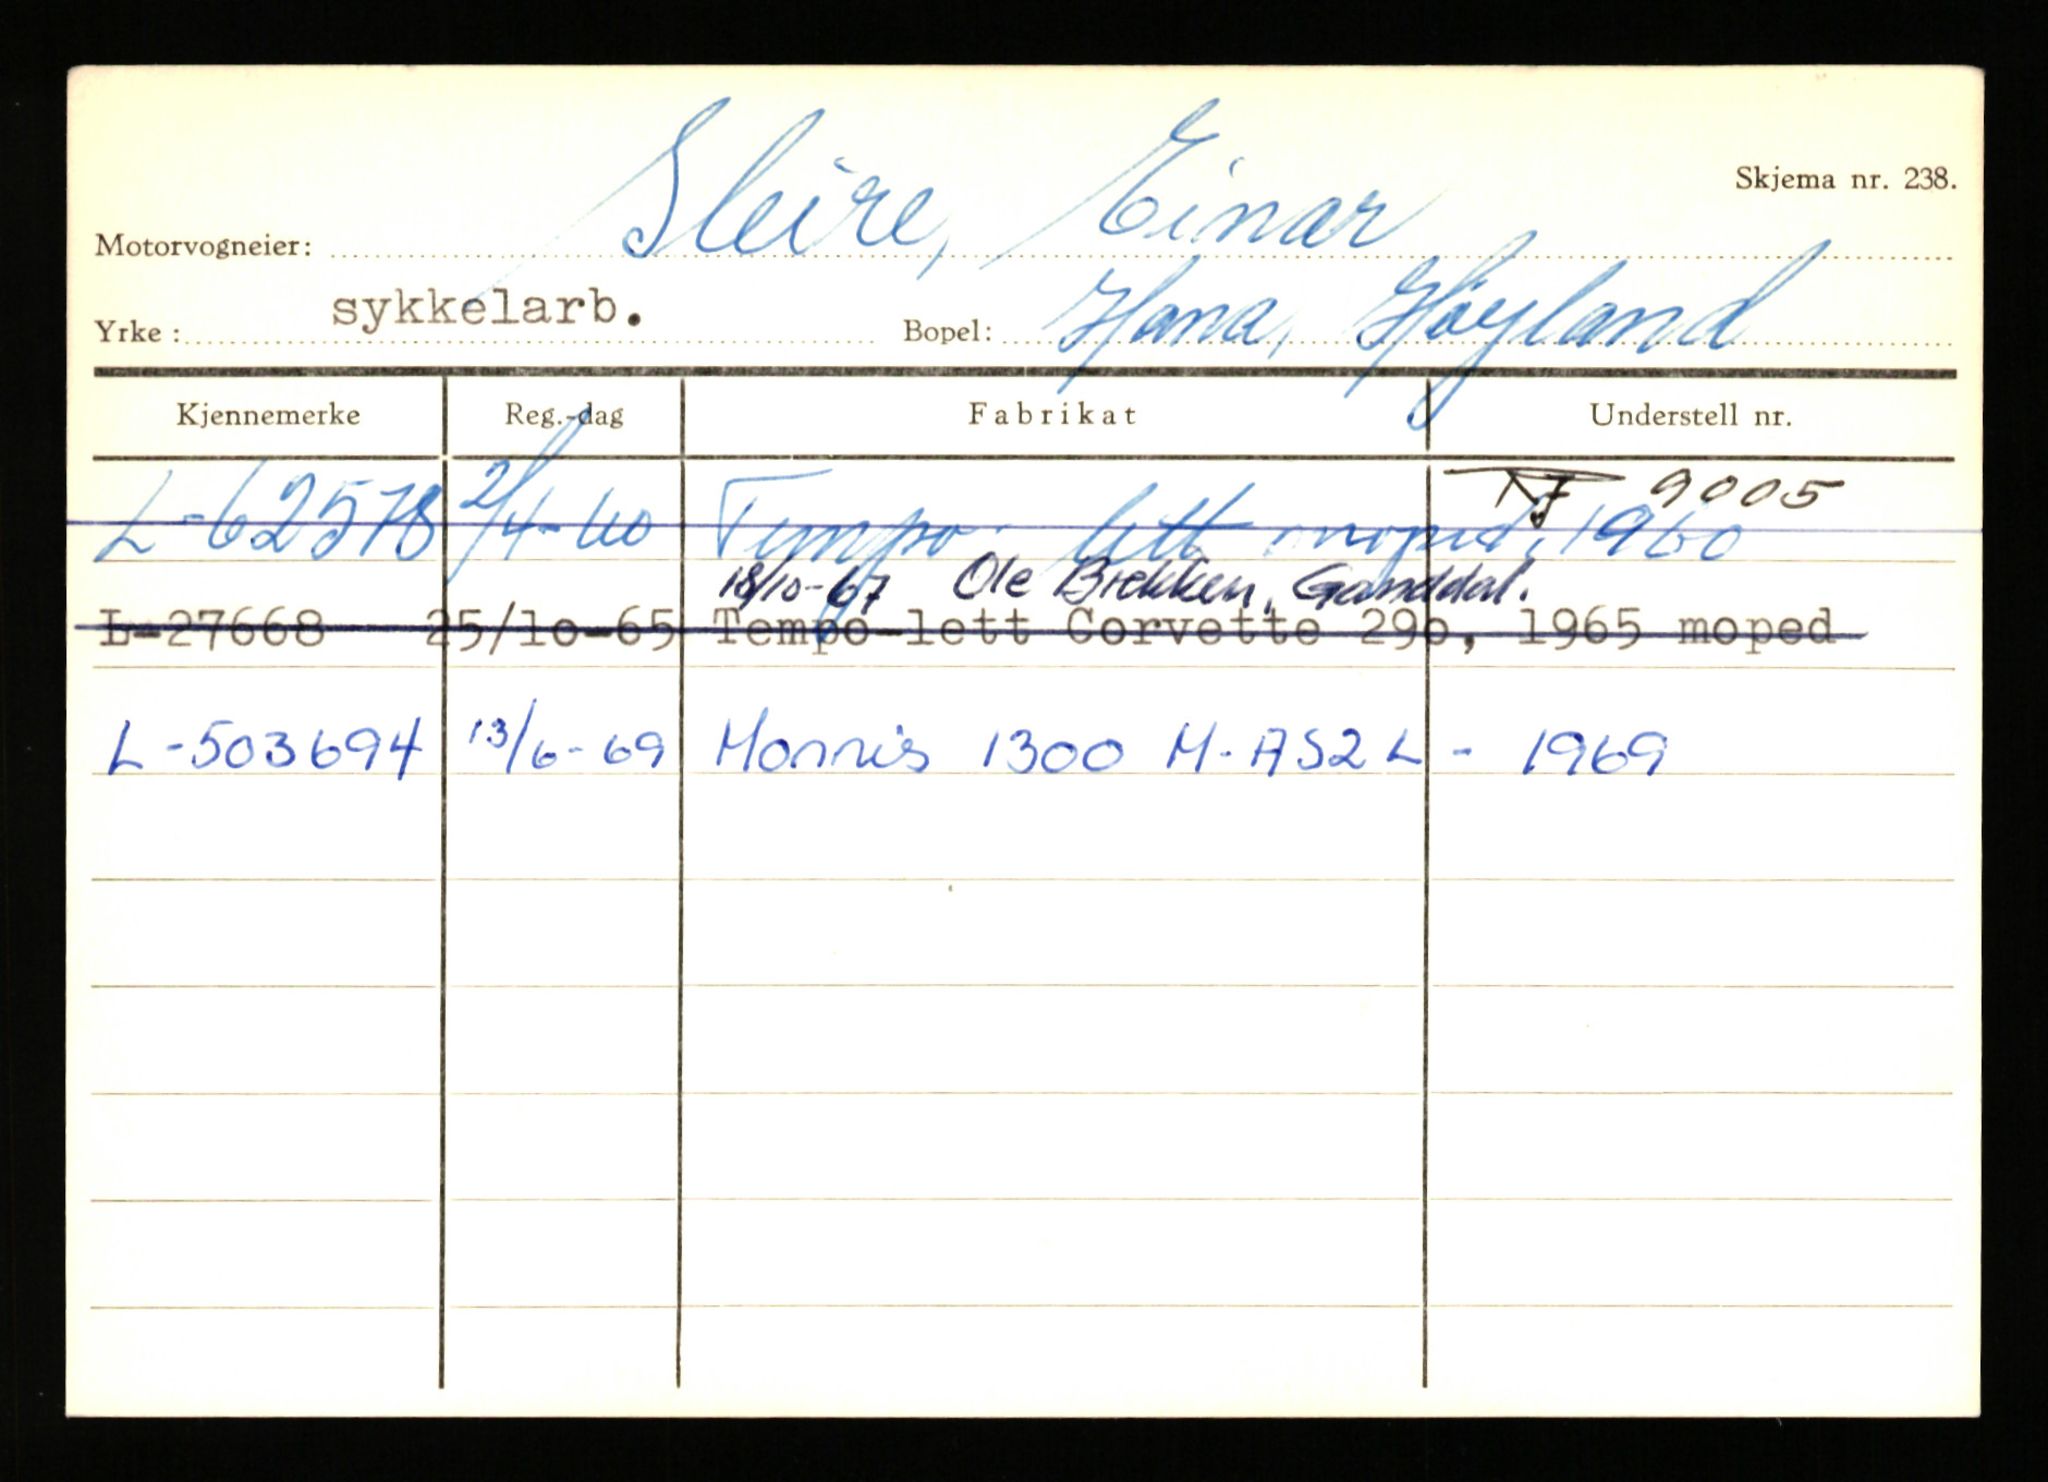 Skjema nr. 238.
Motorvogneier: Sleire, Einar
Yrke: sykkelarb. Bopel: Hana, Høyland
Kjennemerke Reg.-dag Fabrikat Understell nr.
9005
L-62578 2/4-60 Tempo lett moped, 1960
18/10-67 Ole Brekken, Ganddal.
L-27668 25/10-65 Tempo lett Corvette 29o, 1965 moped
L-503694 13/6-69 Morris 1300 M-AS2L - 1969